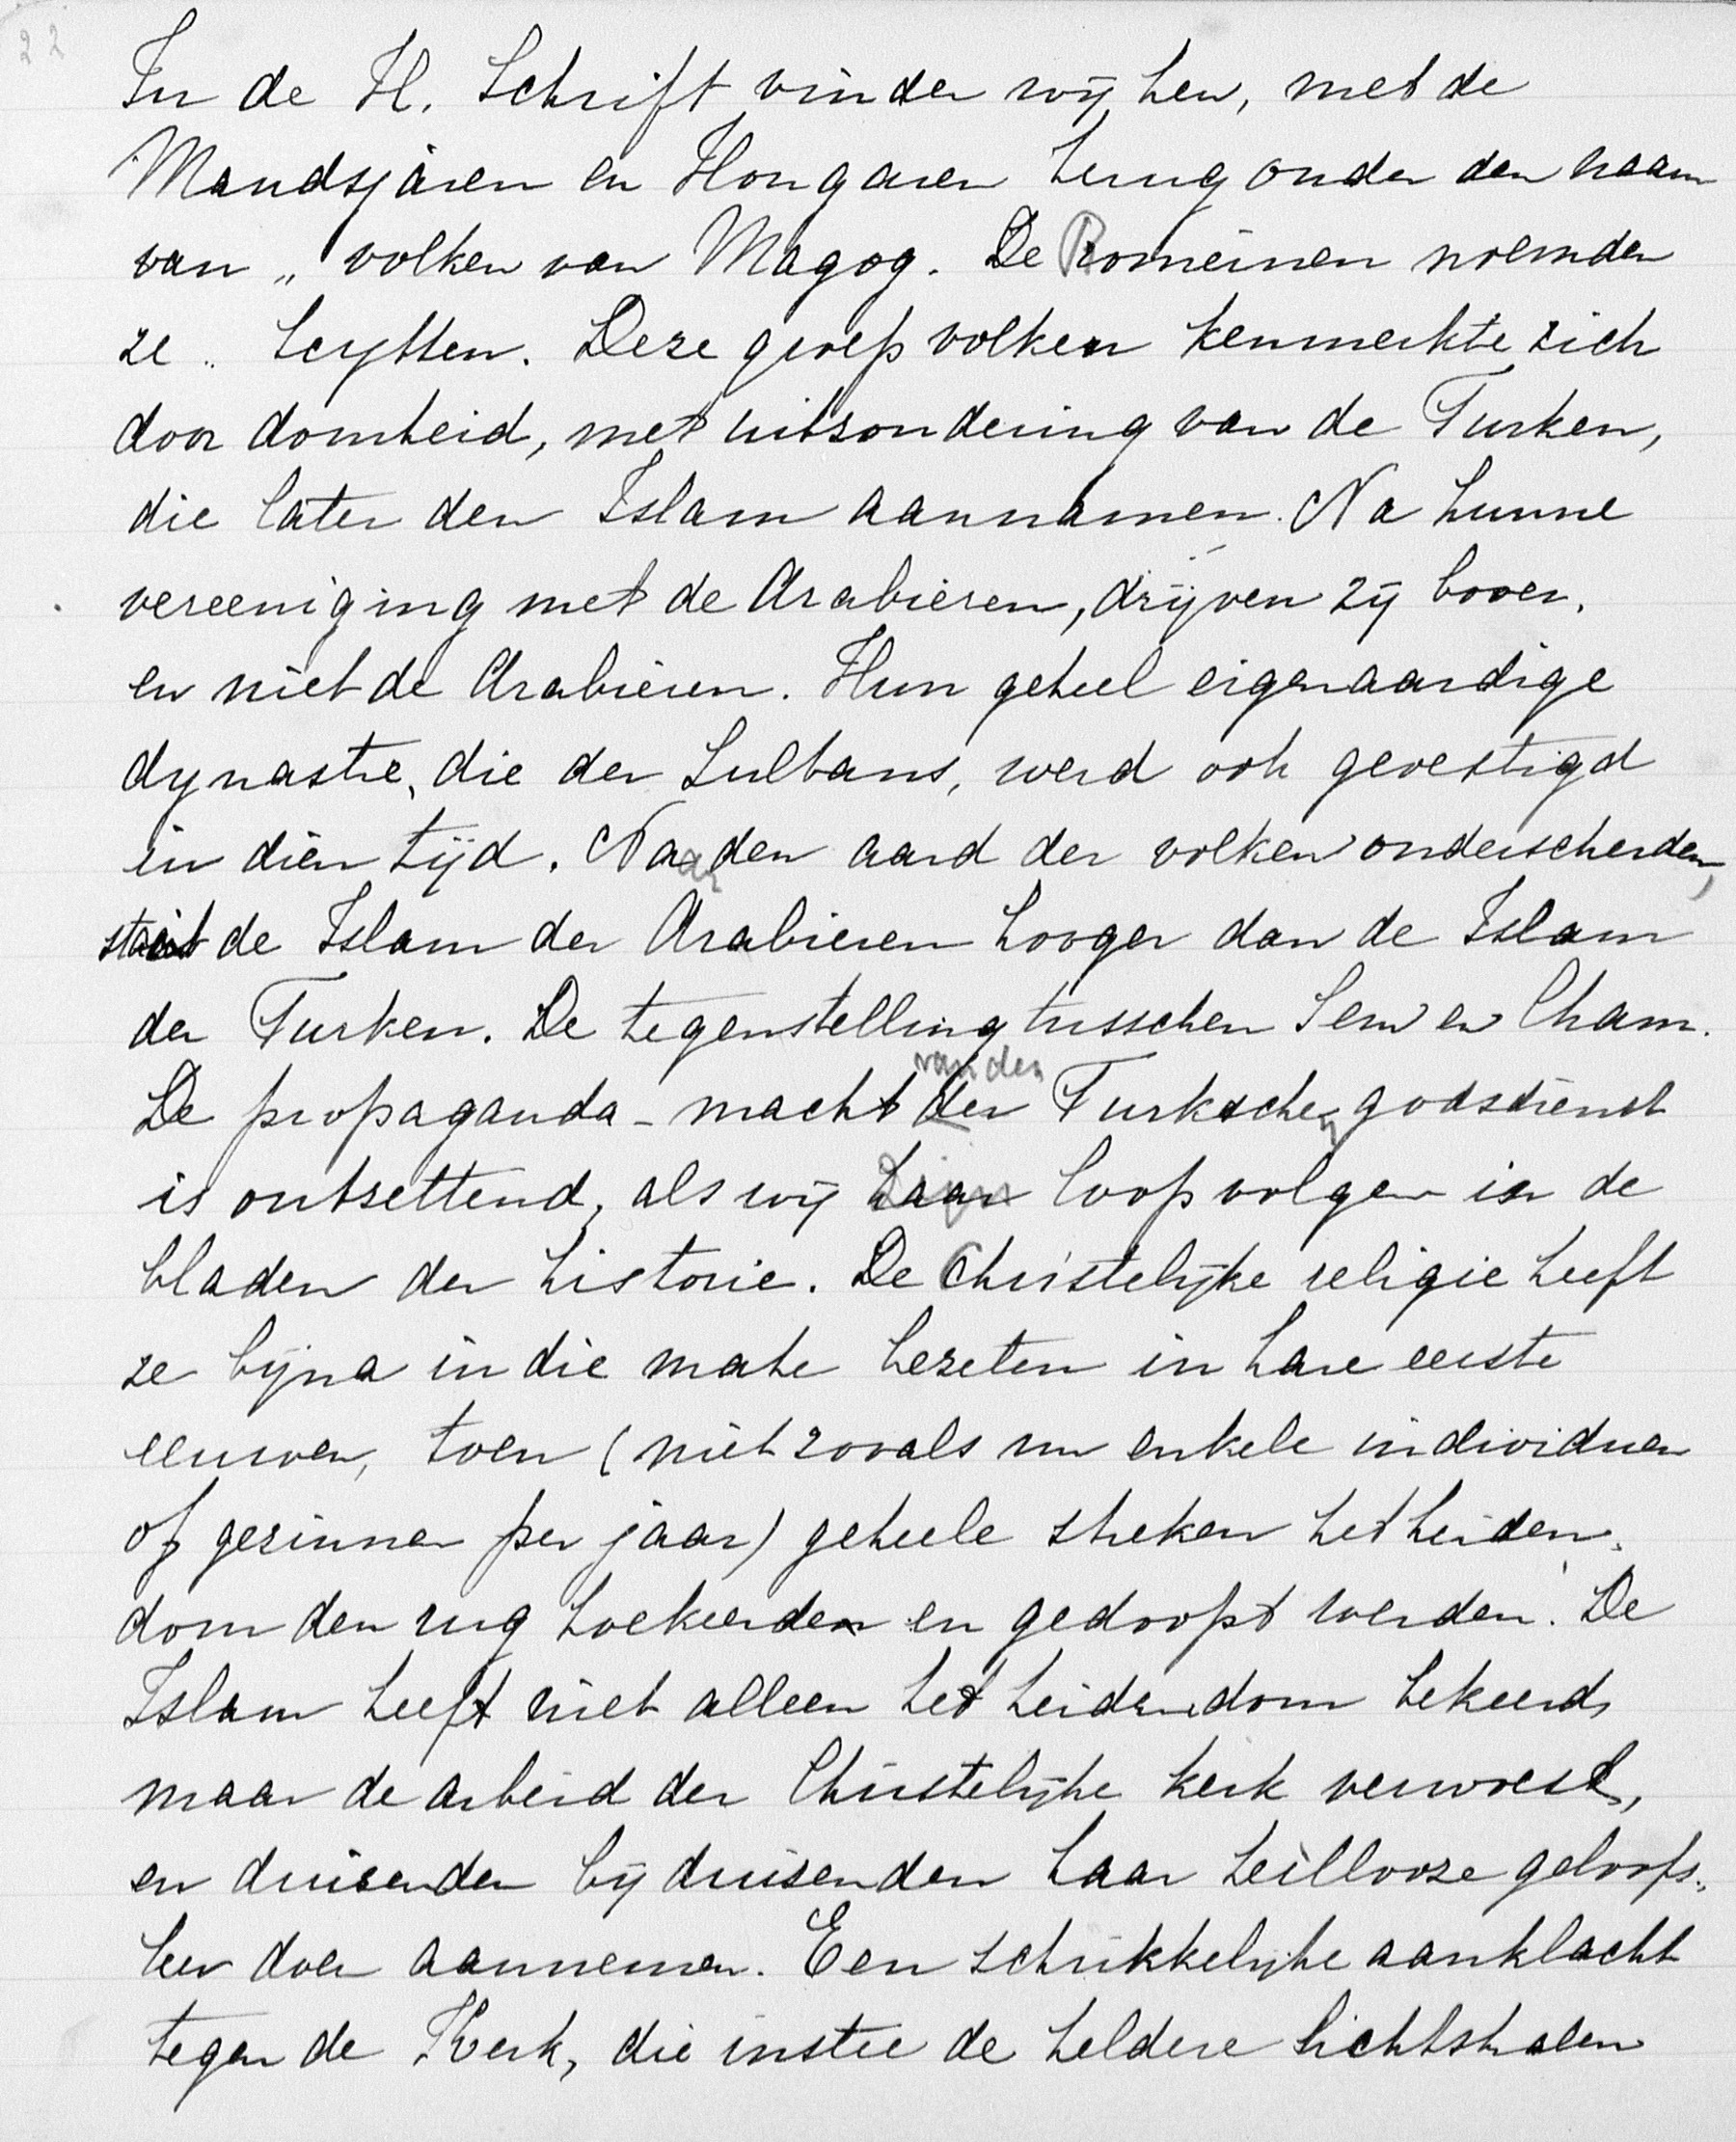 22
In de H. Schrift vinden wij hen, met de
Mandsjáren en Hongaren terug onder den naam
van „ volken van Magog. De Romeinen noemden
ze „ Scythen. Deze groep volken kenmerkte zich
door domheid, met uitzondering van de Turken,
die later den Islam aannamen. Na hunne
vereeniging met de Arabieren, drijven zij boven,
en niet de Arabieren. Hun geheel eigenaardige
dynastie, die der Sultans, werd ook gevestigd
in dien tijd. Naar den aard der volken onderscheiden,
staat de Islam der Arabieren hooger dan de Islam
der Turken. De tegenstelling tusschen Sem en Cham.
van den
De propaganda-macht der Turkschen godsdienst
is ontzettend, als wij zijn loop volgen in de
bladen der historie. De Christelijke religie heeft
ze bijna in die mate bezeten in hare eerste
eeuwen, toen (niet zooals nu enkele individuen
of gezinnen per jaar) geheele streken het heiden-
dom den rug toekeerden en gedoopt werden. De
Islam heeft niet alleen het heidendom bekeerd,
maar de arbeid der Christelijke kerk verwoest,
en duizenden bij duizenden haar heillooze geloofs-
leer doen aannemen. Een schrikkelijke aanklacht
tegen de Kerk, die instee de heldere lichtstralen